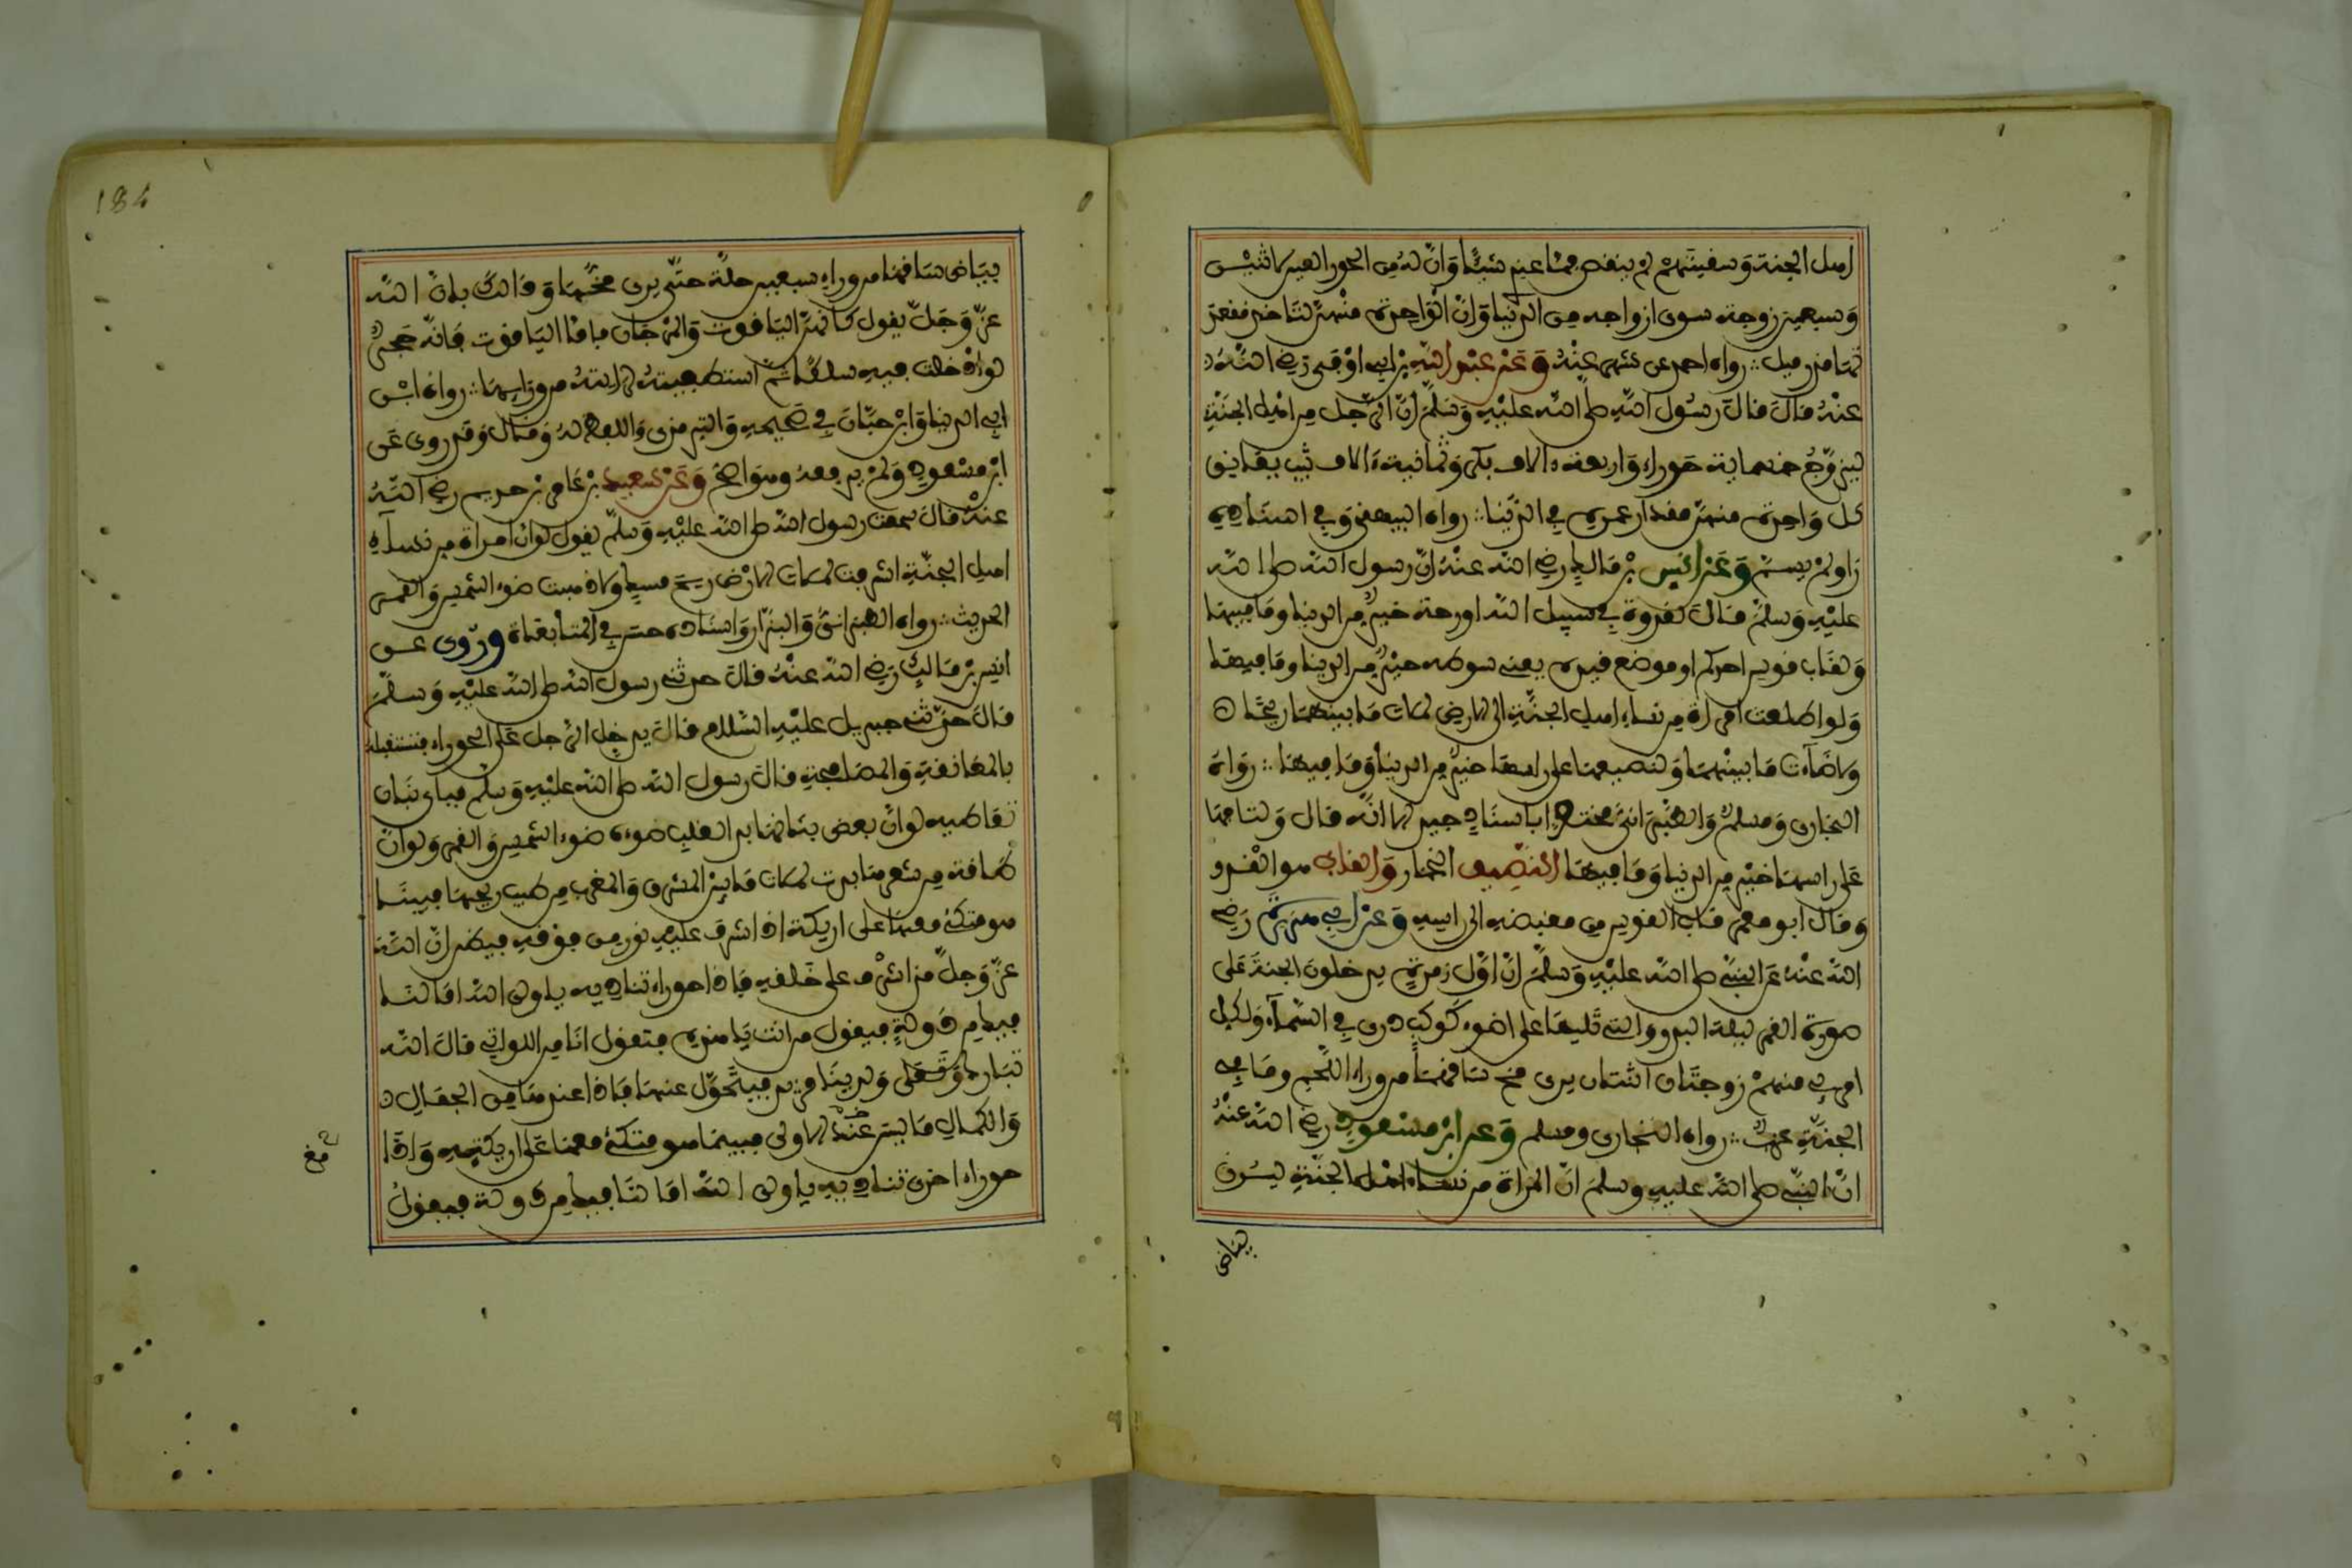 اهل الجنة وسقيتهم لم ينقص مما عندي شيئا وان له من الحور العين لاثنين
وسبعين زوجة سوى ازواجه من الدنيا وان الواحدة منهن لتاخذ مقعدتها
قدر ميل رواه احمد عن شهر عنه وعن عبد الله بن ابي اوفى رضي الله
عنه قال قال رسول الله صلى الله عليه وسلم ان الرجل من اهل الجنة
ليزوج خمسماية حوراء واربعة ءالاف بكر وثمانية ءالاف ثيب يعانق
كل واحدة منهن مقدار عمره في الدنيا رواه البيهقي وفي اسناده
راو لم يسم وعن انس بن مالك رضي الله عنه ان رسول الله صلى الله
عليه وسلم قال لغدوة في سبيل الله او روحة خير من الدنيا وما فيها
ولقاب قوس احدكم او موضع قيده يعني سوطه خير من الدنيا وما فيها
ولو اطلعت امراة من نساء اهل الجنة الى الارض لملات ما بينهما ريحا
ولاضاءت ما بينهما ولنصيفها على راسها خير من الدنيا وما فيها رواه
البخاري ومسلم والطبراني مختصرا باسناد جيد الا انه قال ولتاجها
على راسها خير من الدنيا وما فيها النصيف الخمار والقاب هو القدر
وقال ابو معمر قاب القوس من مقبضه الى راسه وعن ابي هريرة رضي
الله عنه عن النبي صلى الله عليه وسلم ان اول زمرة يدخلون الجنة على
صورة القمر ليلة البدر والتي تليها على اضوء كوكب دري في السماء ولكل
امرئ منهم زوجتان اثنتان يرى مخ ساقهما من وراء اللحم وما في
الجنة عزب رواه البخاري ومسلم وعن ابن مسعود رضي الله عنه
ان النبي صلى الله عليه وسلم ان المراة من نساء اهل الجنة ليرى
بياض
184
بياض ساقها من وراء سبعين حلة حتى يرى مخها وذالك بان الله
عز وجل يقول كانهن الياقوت والمرجان فاما الياقوت فانه حجر
لو ادخلت فيه سلكا ثم استصفيته لاريته من ورايها رواه ابن
ابي الدنيا وابن حبان في صحيحه والترمذي واللفظ له وقال وقد روي عن
ابن مسعود ولم يرفعه وهو اصح وعن سعيد بن عامر بن حريم رضي الله
عنه قال سمعت رسول الله صلى الله عليه وسلم يقول لو ان امراة من نساء
اهل الجنة اشرفت لملات الارض ريح مسك ولاذهبت ضوء الشمس والقمر
الحديث رواه الطبراني والبزار واسناده حسن في المتابعاة وروي عن
انس بن مالك رضي الله عنه قال حدثني رسول الله صلى الله عليه وسلم
قال حدثني جبريل عليه السلام قال يدخل الرجل على الحوراء فتستقبله
بالمعانقة والمصافحة قال رسول الله صلى الله عليه وسلم فباي بنان
تعاطيه لو ان بعض بنانها بدا لغلب ضوءه ضوء الشمس والقمر ولو ان
طاقة من شعرها بدت لملات ما بين المشرق والمغرب من طيب ريحها فبينما
هو متكئ معها على اريكة اذا اشرف عليه نور من فوقه فيظن ان الله
عز وجل قد اشرف على خلقه فاذا حوراء تناديه يا ولي الله اما لنا
فيك من دولة فيقول من انت يا هذه فتقول انا من اللواتي قال الله
تبارك وتعالى ولدينا مزيد فيتحول عنها فاذا عندها من الجمال
والكمال ما ليس عند الاولى فبينما هو متكئ معها على اريكته واذا
حوراء اخرى تناديه يا ولي الله اما لنا فيك من دولة فيقول